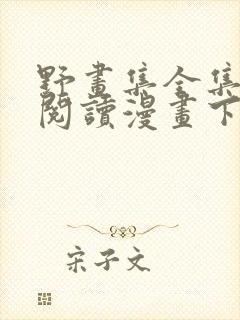 野畫集全集
閱讀漫畫下
宋子文